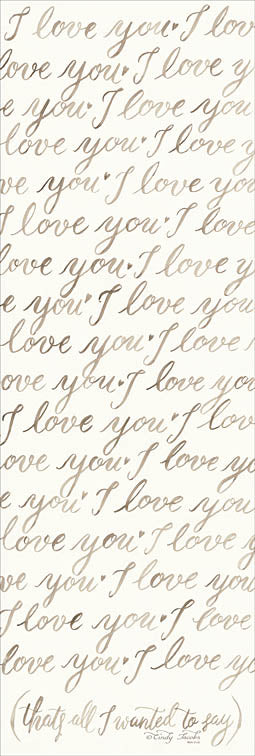 I love you♥I lov
love you♥I love y
e you♥I love you
love you♥I love y
ve you♥I love you
I love you♥I love
love you♥I love y
e you♥I love you
love you♥I love
ove you♥I love you
I love you♥I lov
ove you♥I love yo
e you♥I love you
love you♥I love y
ve you♥I love you
I love you♥I love
love you♥I love y
(thats all I wanted to say)
©Cindy Jacobs